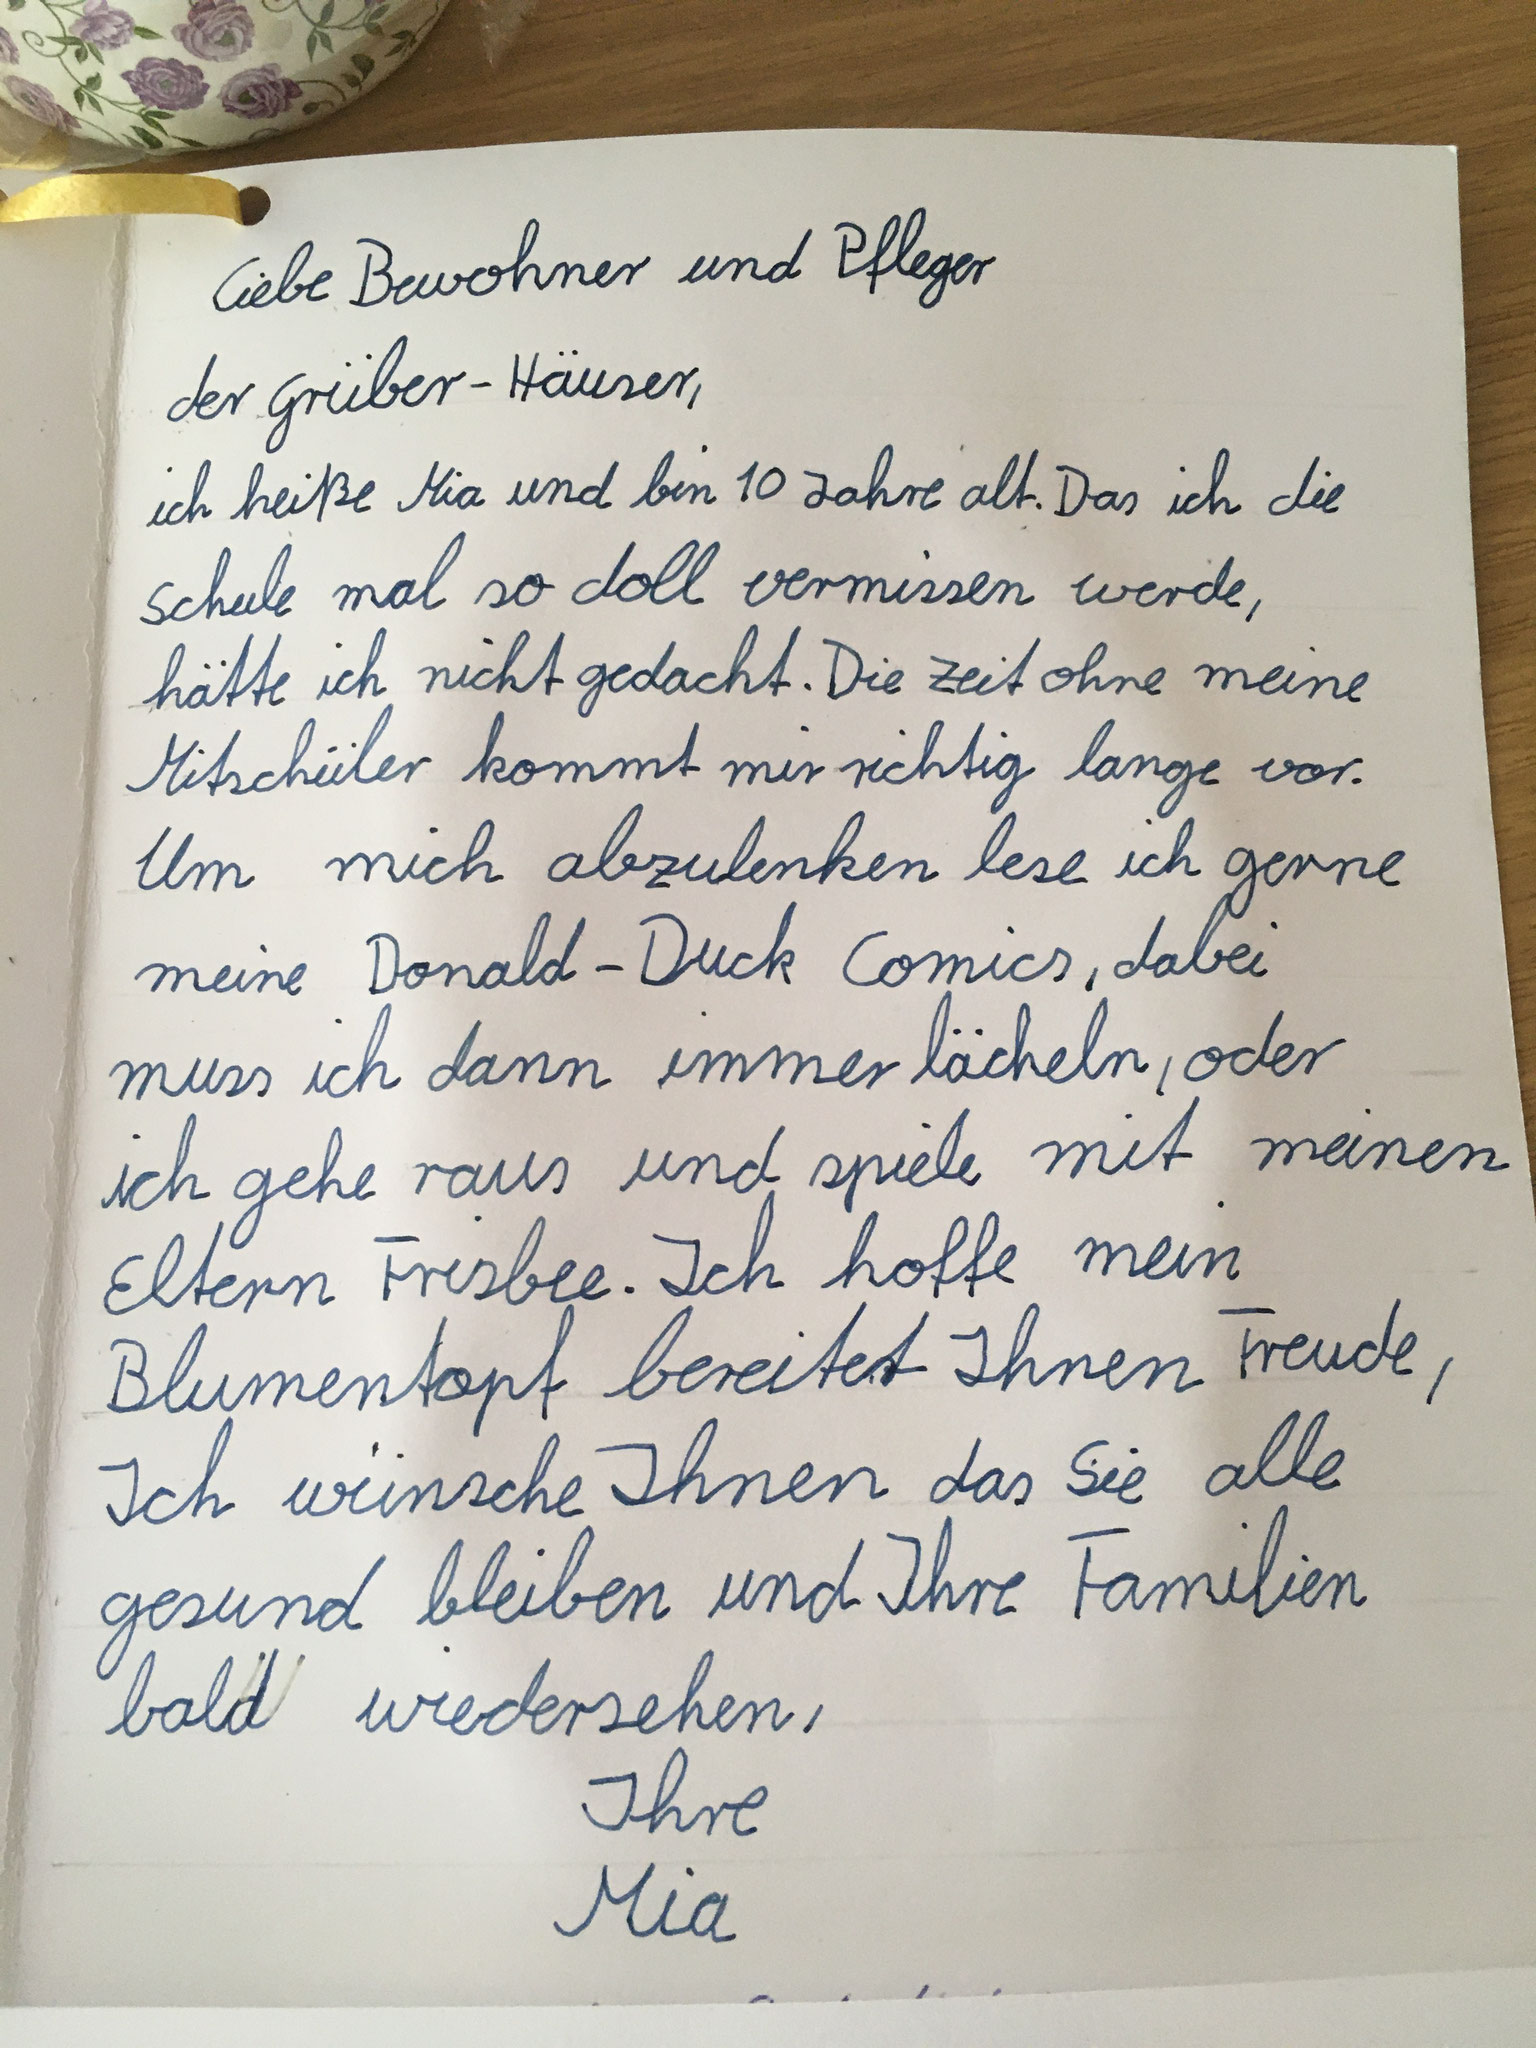 Liebe Bewohner und Pfleger
der Grüber-Häuser,
ich heiße Mia und bin 10 Jahre alt. Das ich die
Schule mal so doll vermissen werde,
hätte ich nicht gedacht. Die Zeit ohne meine
Mitschüler kommt mir richtig lange vor.
Um mich abzulenken lese ich gerne
meine Donald-Duck Comics, dabei
muss ich dann immer lächeln, oder
ich gehe raus und spiele mit meinen
Eltern Frisbee. Ich hoffe mein
Blumentopf bereitet Ihnen Freude,
Ich wünsche Ihnen das Sie alle
gesund bleiben und Ihre Familien
bald wiedersehen,
Ihre
Mia